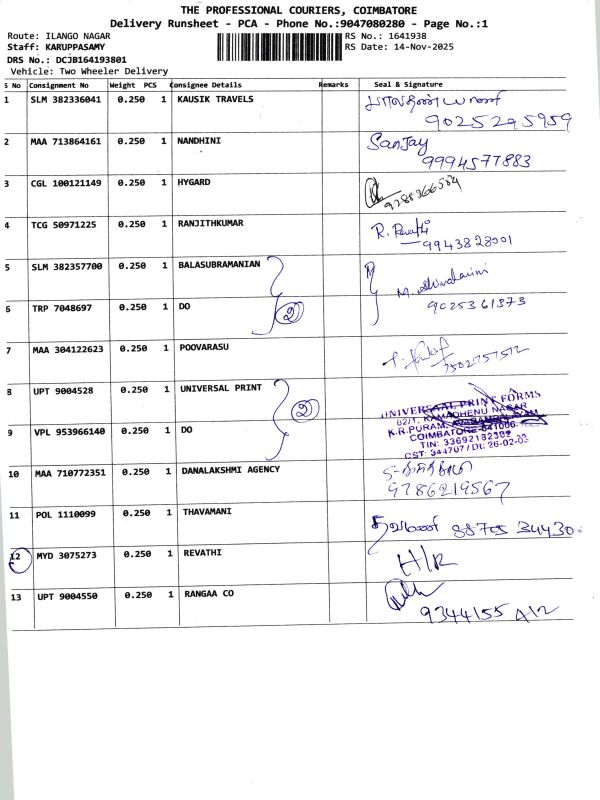 THE PROFESSIONAL COURIERS, COIMBATORE
Delivery Runsheet - PCA - Phone No.:9047080280 - Page No.:1
Route: ILANGO NAGAR RS No.: 1641938
Staff: KARUPPASAMY RS Date: 14-Nov-2025
DRS No.: DCJB164193801
Vehicle: Two Wheeler Delivery
S No Consignment No Weight PCS Consignee Details Remarks Seal & Signature
1 SLM 382336041 0.250 1 KAUSIK TRAVELS
9025295959
2 MAA 713864161 0.250 1 NANDHINI Sanjay
9994577883
3 CGL 100121149 0.250 1 HYGARD
4 TCG 50971225 0.250 1 RANJITHKUMAR R. Revathi
9943828001
5 SLM 382357700 0.250 1 BALASUBRAMANIAN
6 TRP 7048697 0.250 1 DO 2 9025361373
7 MAA 304122623 0.250 1 POOVARASU
8 UPT 9004528 0.250 1 UNIVERSAL PRINT
2
UNIVERSAAL PRINT FORMS
82/1, KAMADHENU NAGAR
K.R.PURAM, AVARAMPALAYAM
COIMBATORE-641006
9 VPL 953966140 0.250 1 DO
TIN: 33692182309
CST: 344707 / Dt: 26-02-03
10 MAA 710772351 0.250 1 DANALAKSHMI AGENCY
9786219567
11 POL 1110099 0.250 1 THAVAMANI
88705 34430
12 MYD 3075273 0.250 1 REVATHI H/R
13 UPT 9004550 0.250 1 RANGAA CO
9344155